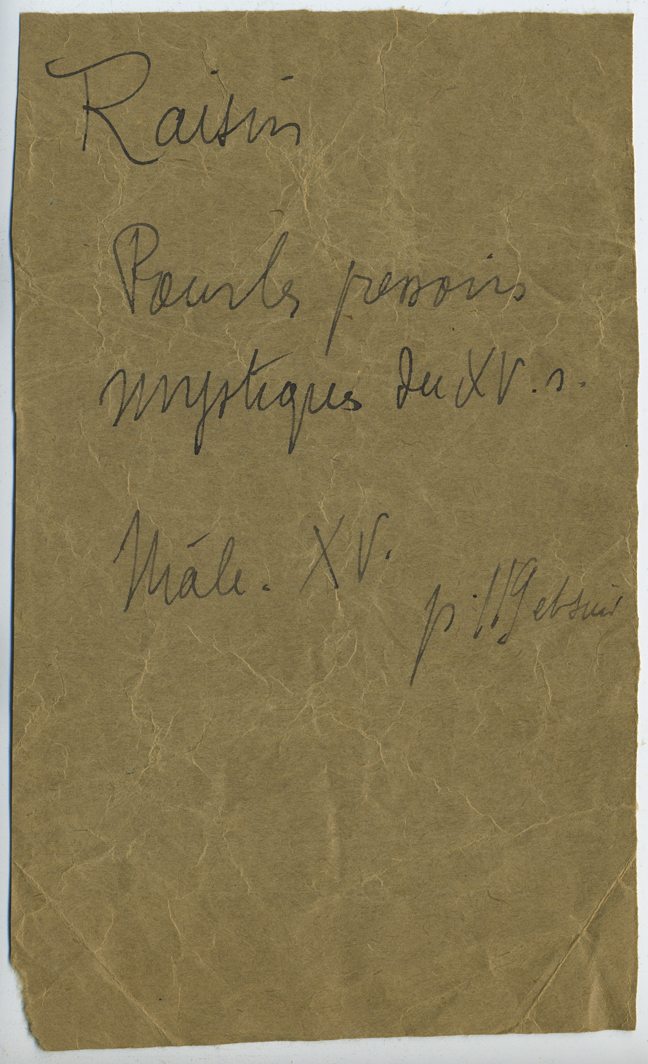 Raisin
Pour les pressoirs
mystiques du XV. s.
Mâle. XV.
p. 119 et suiv